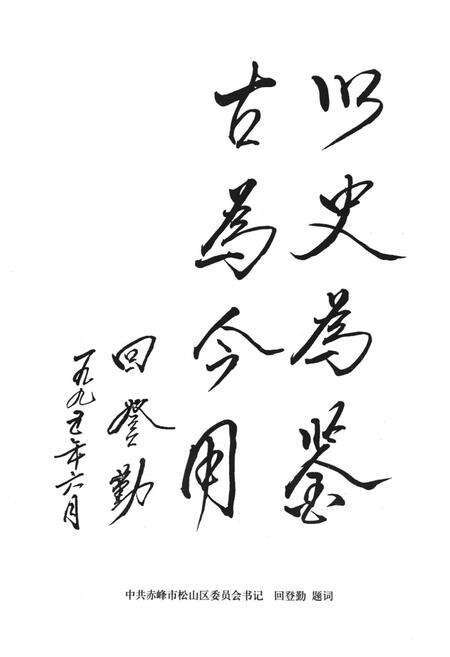 以史为鉴
古为今用
回登勤
一九九五年六月
中共赤峰市松山区委员会书记 回登勤 题词